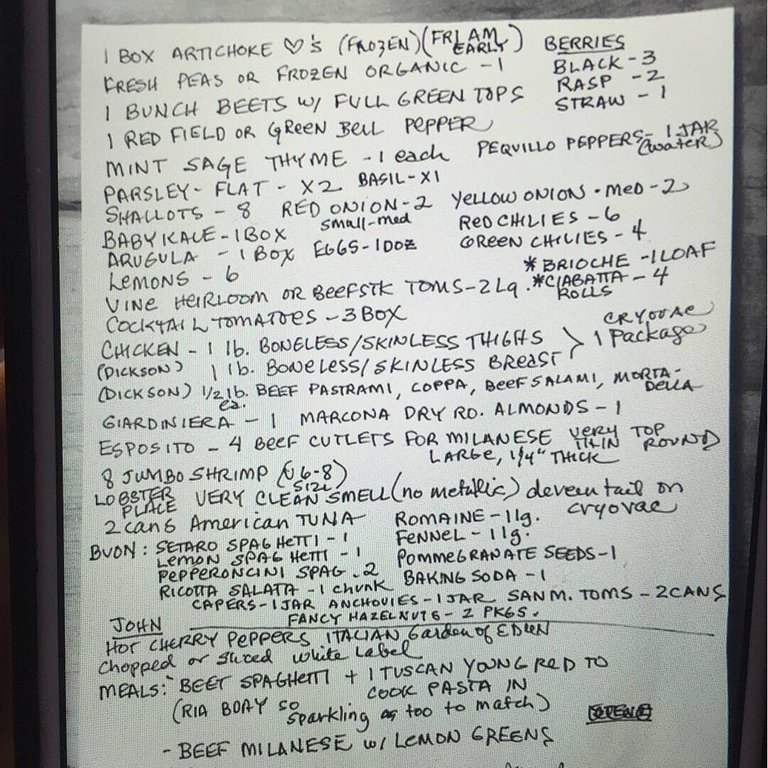 1 BOX ARTICHOKE ♡'s (FROZEN) (FRI AM EARLY)
BERRIES
FRESH PEAS OR FROZEN ORGANIC - 1
BLACK - 3
1 BUNCH BEETS W/ FULL GREEN TOPS
RASP - 2
STRAW - 1
1 RED FIELD OR GREEN BELL PEPPER
MINT SAGE THYME - 1 each
PEQUILLO PEPPERS - 1 JAR (water)
PARSLEY - FLAT - X2 BASIL - X1
SHALLOTS - 8 RED ONION - 2 YELLOW ONION - MED - 2
small-med
BABY KALE - 1 BOX
RED CHILIES - 6
ARUGULA - 1 BOX EGGS - 1 DOZ
GREEN CHILIES - 4
LEMONS - 6
* BRIOCHE - 1 LOAF
VINE HEIRLOOM OR BEEFSTK TOMS - 2 Lg. * CIABATTA - 4
ROLLS
COCKTAIL TOMATOES - 3 BOX
CHICKEN - 1 lb. BONELESS/SKINLESS THIGHS
CRYOVAC
(DICKSON) 1 lb. BONELESS/SKINLESS BREAST > 1 Package
(DICKSON) 1/2 lb. BEEF PASTRAMI, COPPA, BEEF SALAMI, MORTA-
ea. DELLA
GIARDINIERA - 1 MARCONA DRY RO. ALMONDS - 1
ESPOSITO - 4 BEEF CUTLETS FOR MILANESE VERY THIN TOP ROUND
LARGE, 1/4" THICK
8 JUMBO SHRIMP (U 6-8)
SIZE
LOBSTER PLACE VERY CLEAN SMELL (no metallic) devein tail on
cryovac
2 cans American TUNA
ROMAINE - 1 lg.
BUON: SETARO SPAGHETTI - 1
FENNEL - 1 lg.
LEMON SPAGHETTI - 1
POMMEGRANATE SEEDS - 1
PEPPERONCINI SPAG. 2
BAKING SODA - 1
RICOTTA SALATA - 1 chunk
CAPERS - 1 JAR ANCHOVIES - 1 JAR SAN M. TOMS - 2 CANS
FANCY HAZELNUTS - 2 PKGS.
JOHN
HOT CHERRY PEPPERS ITALIAN Garden of EDEN
Chopped or Sliced White Label
MEALS: - BEET SPAGHETTI + 1 TUSCAN YOUNG RED TO
COOK PASTA IN
(RIA BOAY so
sparkling as too to match)
- BEEF MILANESE W/ LEMON GREENS